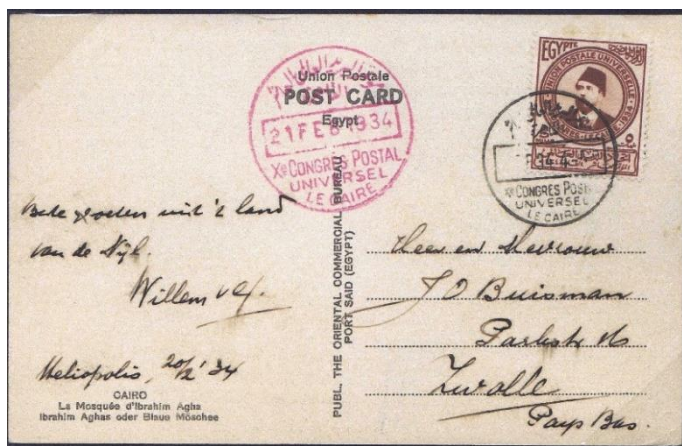 Union Postale
POST CARD
Egypt
21 FEB 1934
Xe CONGRES POSTAL
UNIVERSEL
LE CAIRE
EGYPTE
UNION POSTALE UNIVERSELLE
Xe CONGRES POST
UNIVERSEL
LE CAIRE
Beste groeten uit 't land
van de Nijl.
Willem
Heliopolis, 20/2 '34
CAIRO
La Mosquée d'Ibrahim Agha
Ibrahim Aghas oder Blaue Möschee
PUBL. THE ORIENTAL COMMERCIAL BUREAU
PORT SAID (EGYPT)
Heer en Mevrouw
J D Buisman
Parkstr
Zwolle
Pays Bas.